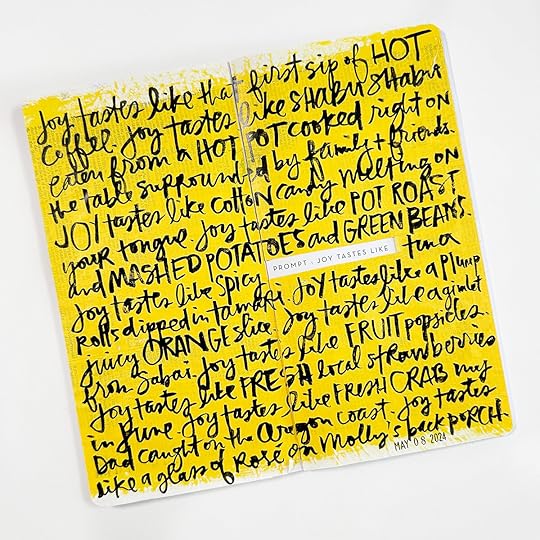 Joy tastes like that first sip of HOT
Coffee. Joy tastes like SHABU SHABU
eaten from a HOT POT cooked right on
the table surrounded by family + friends.
JOY tastes like cotton candy melting on
your tongue. Joy tastes like POT ROAST
and MASHED POTATOES and GREEN BEANS.
PROMPT : JOY TASTES LIKE
Joy tastes like spicy tuna
Rolls dipped in tamari. Joy tastes like a plump
juicy ORANGE slice. Joy tastes like a gimlet
from Sabai. Joy tastes like FRUIT popsicles.
Joy tastes like FRESH local strawberries
in June. Joy tastes like FRESH CRAB my
Dad caught on the Oregon coast. Joy tastes
like a glass of Rosé on Molly's back PORCH.
MAY 08 2024